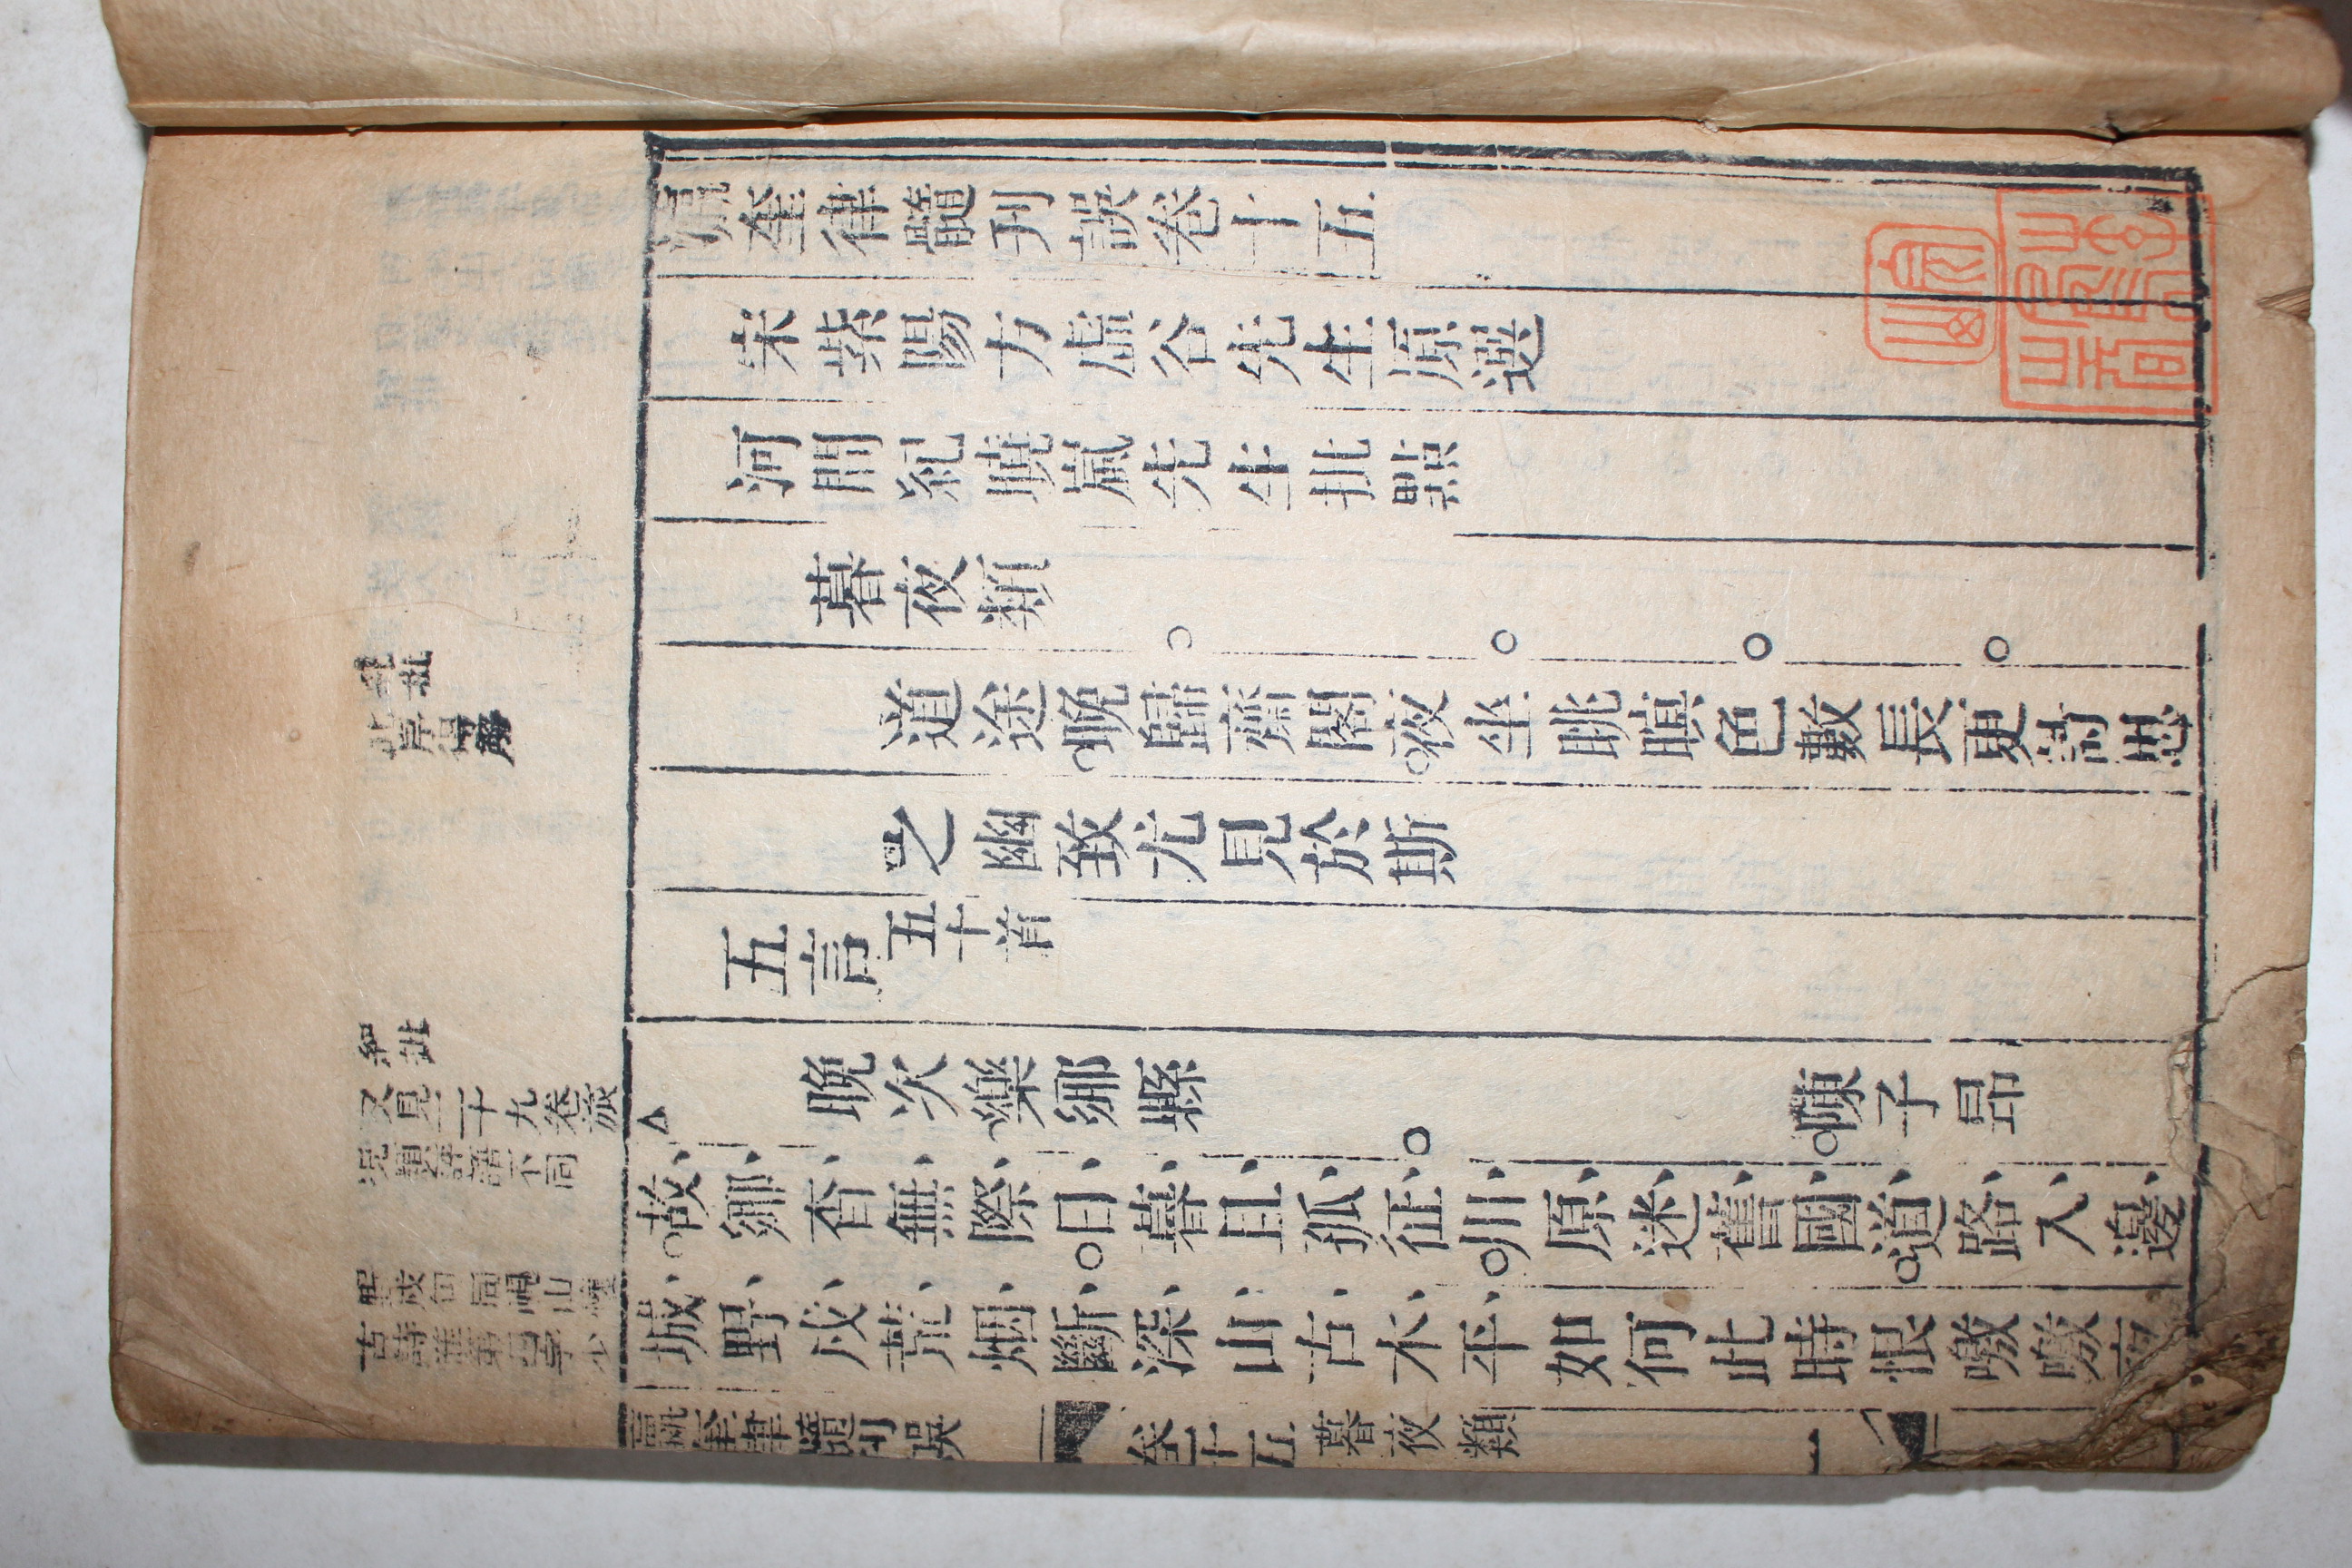 瀛奎律髓刊誤卷十五
宋紫陽方虛谷先生原選
河間紀曉嵐先生批點
暮夜類
道途晚歸齋閣夜坐眺暝色數長更詩思
之幽致尤見於斯
五言五十首
晚次樂鄉縣 陳子昂
故鄉杳無際日暮且孤征川原迷舊國道路入邊
城野戍荒烟斷深山古木平如何此時恨噭噭夜
瀛奎律髓刊誤 卷十五 暮夜類 一
紀批
紀批
又見二十九卷旅
況類評語不同